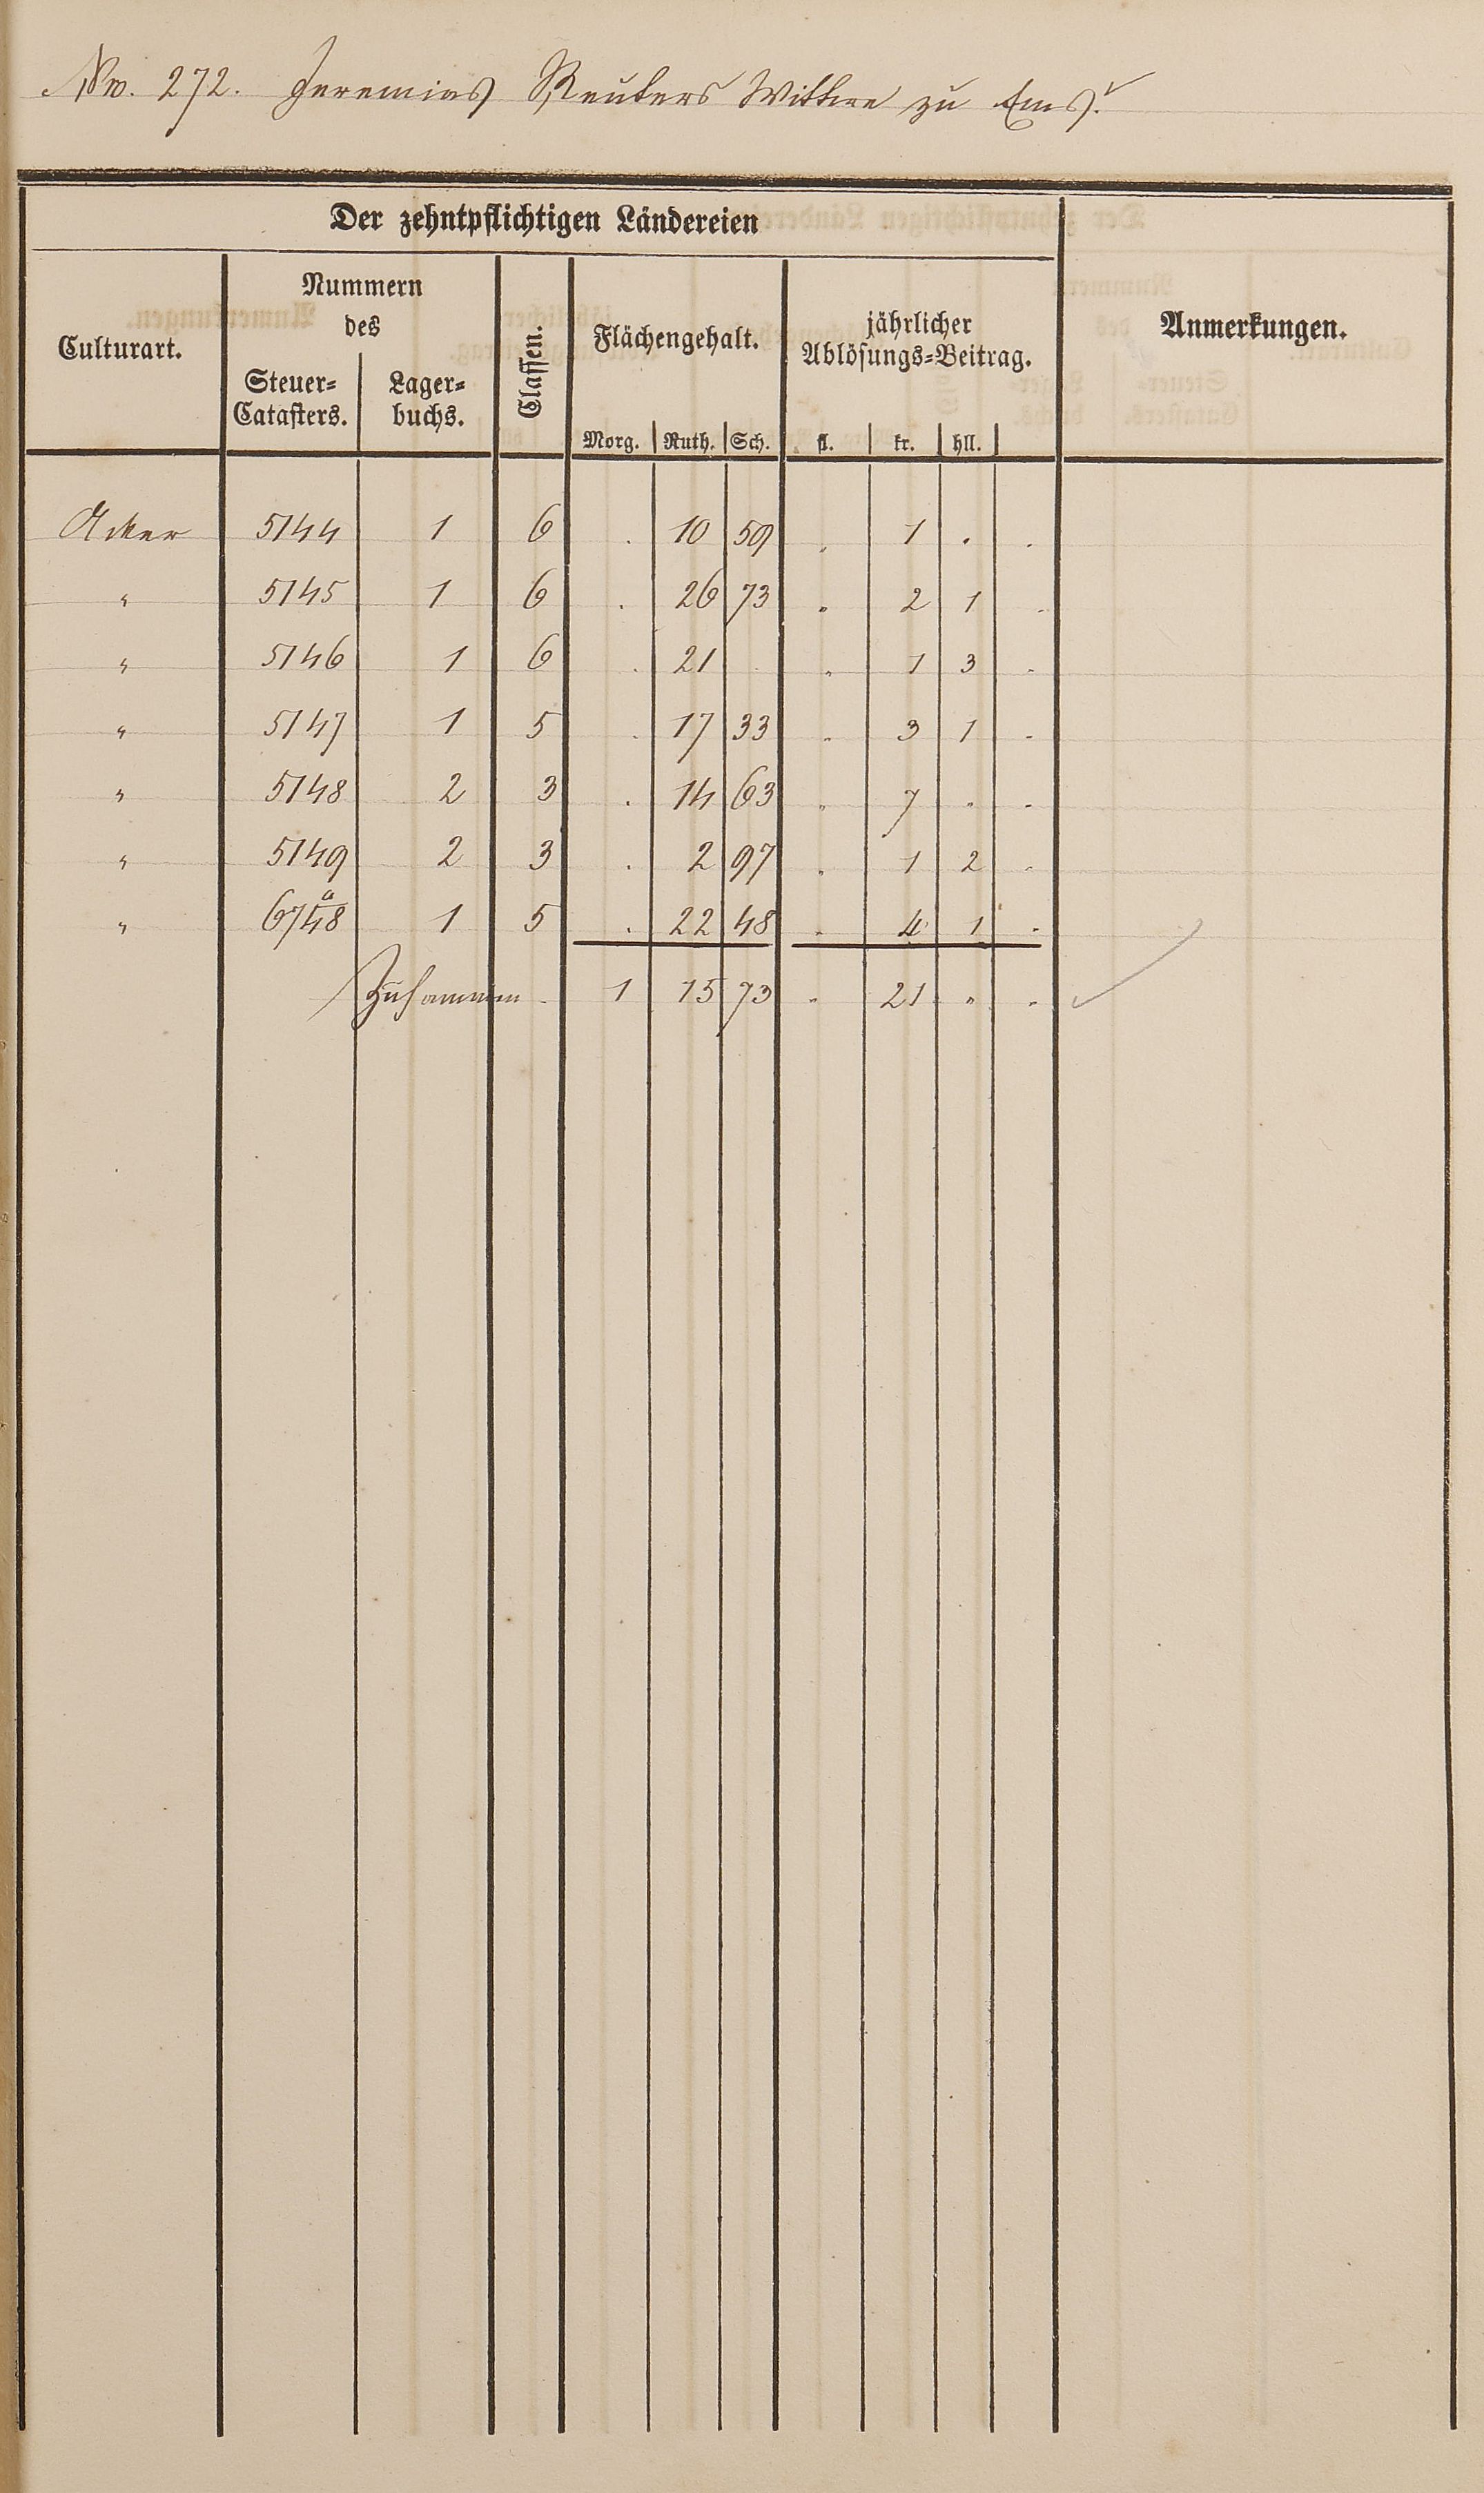 No. 272. Jeremias Reuters Wittwe zu Ems.
Der zehntpflichtigen Ländereien
Culturart. Nummern des Steuer-Catasters. Lager-buchs. Classen. Flächengehalt. jährlicher Ablösungs-Beitrag. Anmerkungen.
Morg. Ruth. Sch. fl. kr. hll.
Acker 5144 1 6 . 10 59 . 1 . .
" 5145 1 6 . 26 73 . 2 1 .
" 5146 1 6 . 21 . . 1 3 .
" 5147 1 5 . 17 33 . 3 1 .
" 5148 2 3 . 14 63 . 7 . .
" 5149 2 3 . 2 97 . 1 2 .
" 6748a 1 5 . 22 48 . 4 1 .
Zusammen 1 15 73 . 21 . .